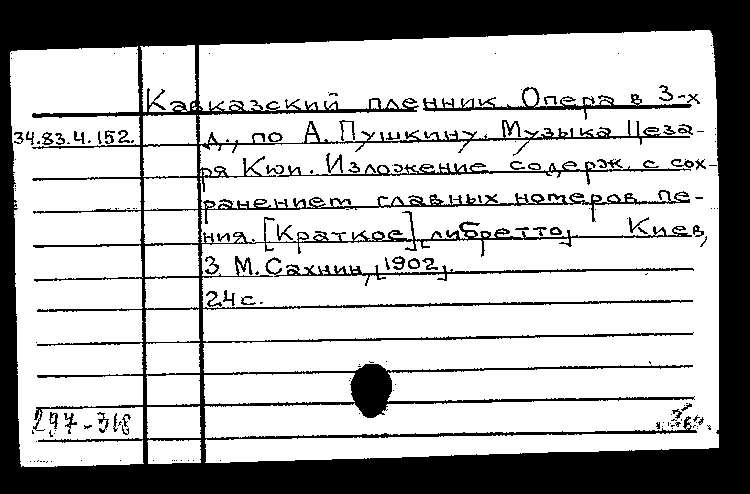 Кавказский пленник. Опера в 3-х
34.83.4.152. д., по А. Пушкину. Музыка Цеза-
ря Кюи. Изложение содерж. с сох-
ранением главных номеров пе-
ния. [Краткое] [либретто]. Киев,
З. М. Сахнин, [1902].
24 с.
297-318